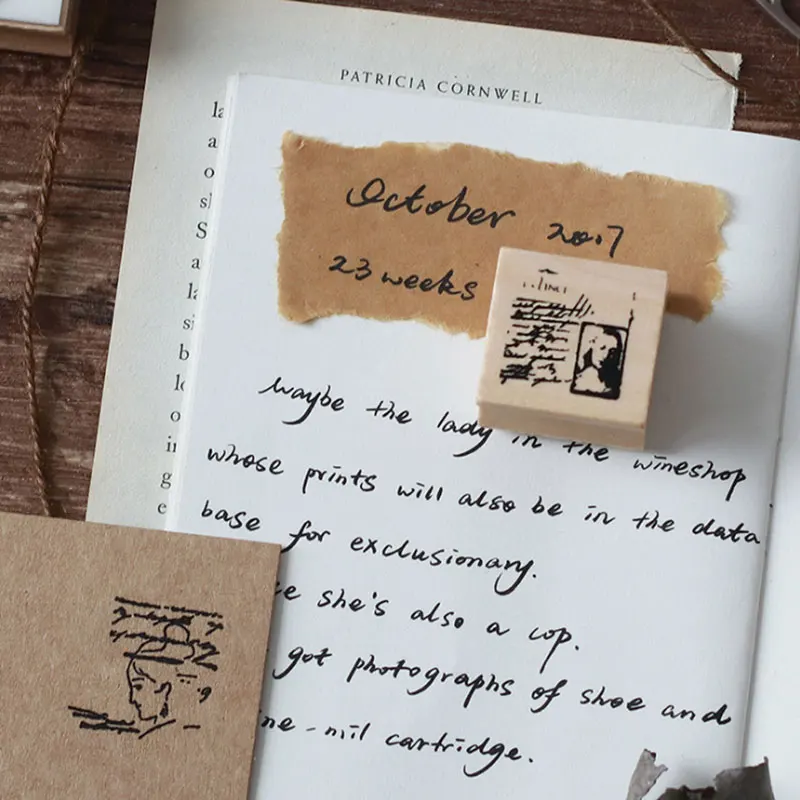 PATRICIA CORNWELL
October 2017
23 weeks
maybe the lady in the wineshop
whose prints will also be in the data
base for exclusionary.
she's also a cop.
got photographs of shoe and
-mil cartridge.